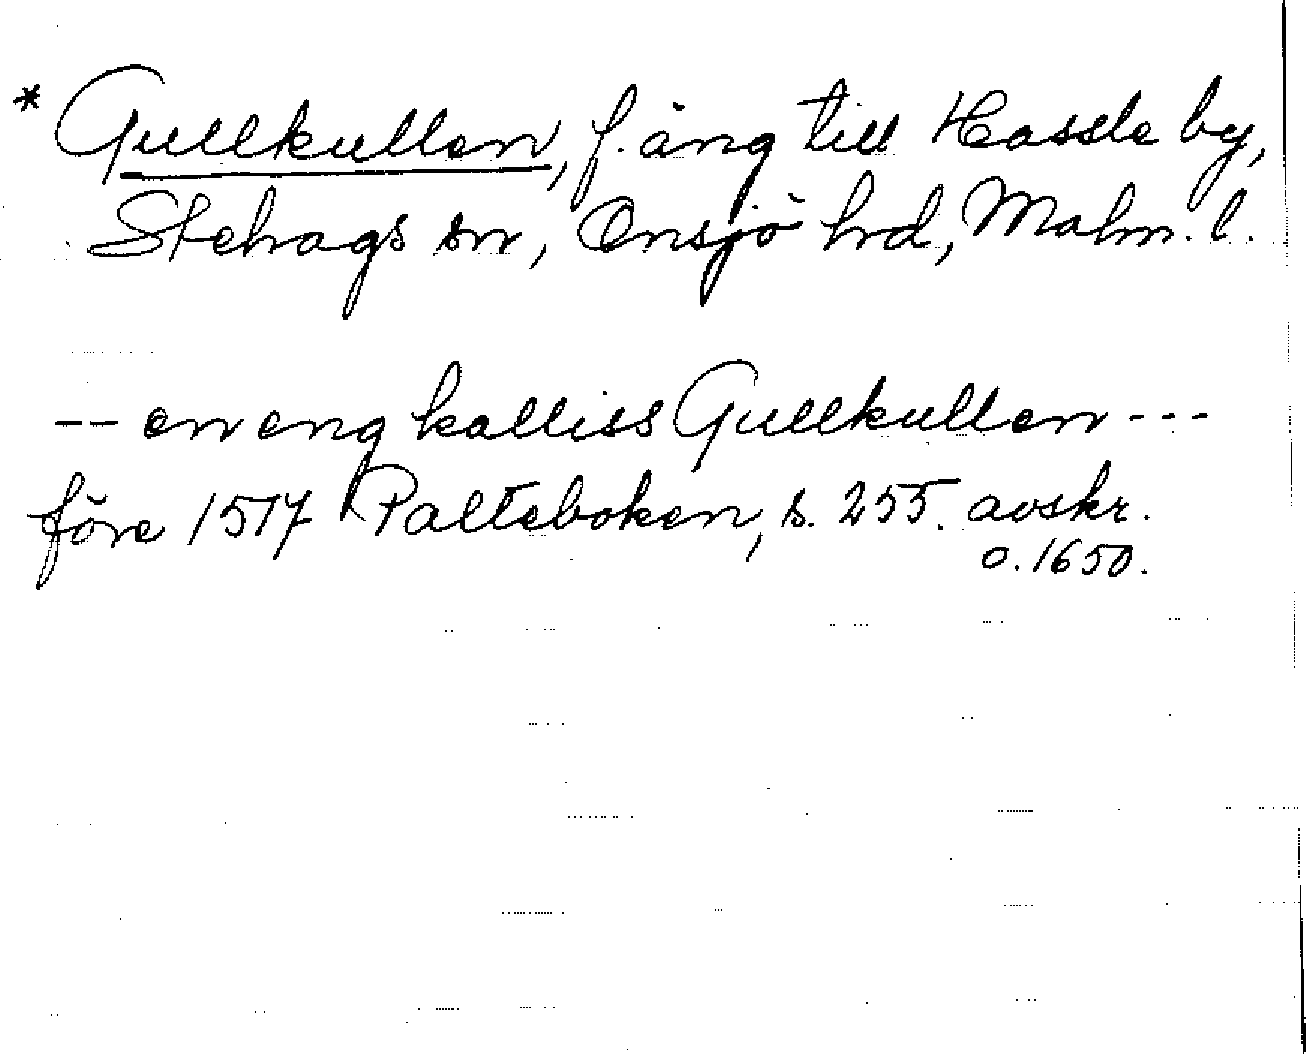 * Gullkullen, f. äng till Hassle by,
Stehags sn, Onsjö hrd, Malm. l.
-- en eng kalliss Gullkullen ---
före 1517 Palteboken, s. 255. avskr.
o. 1650.